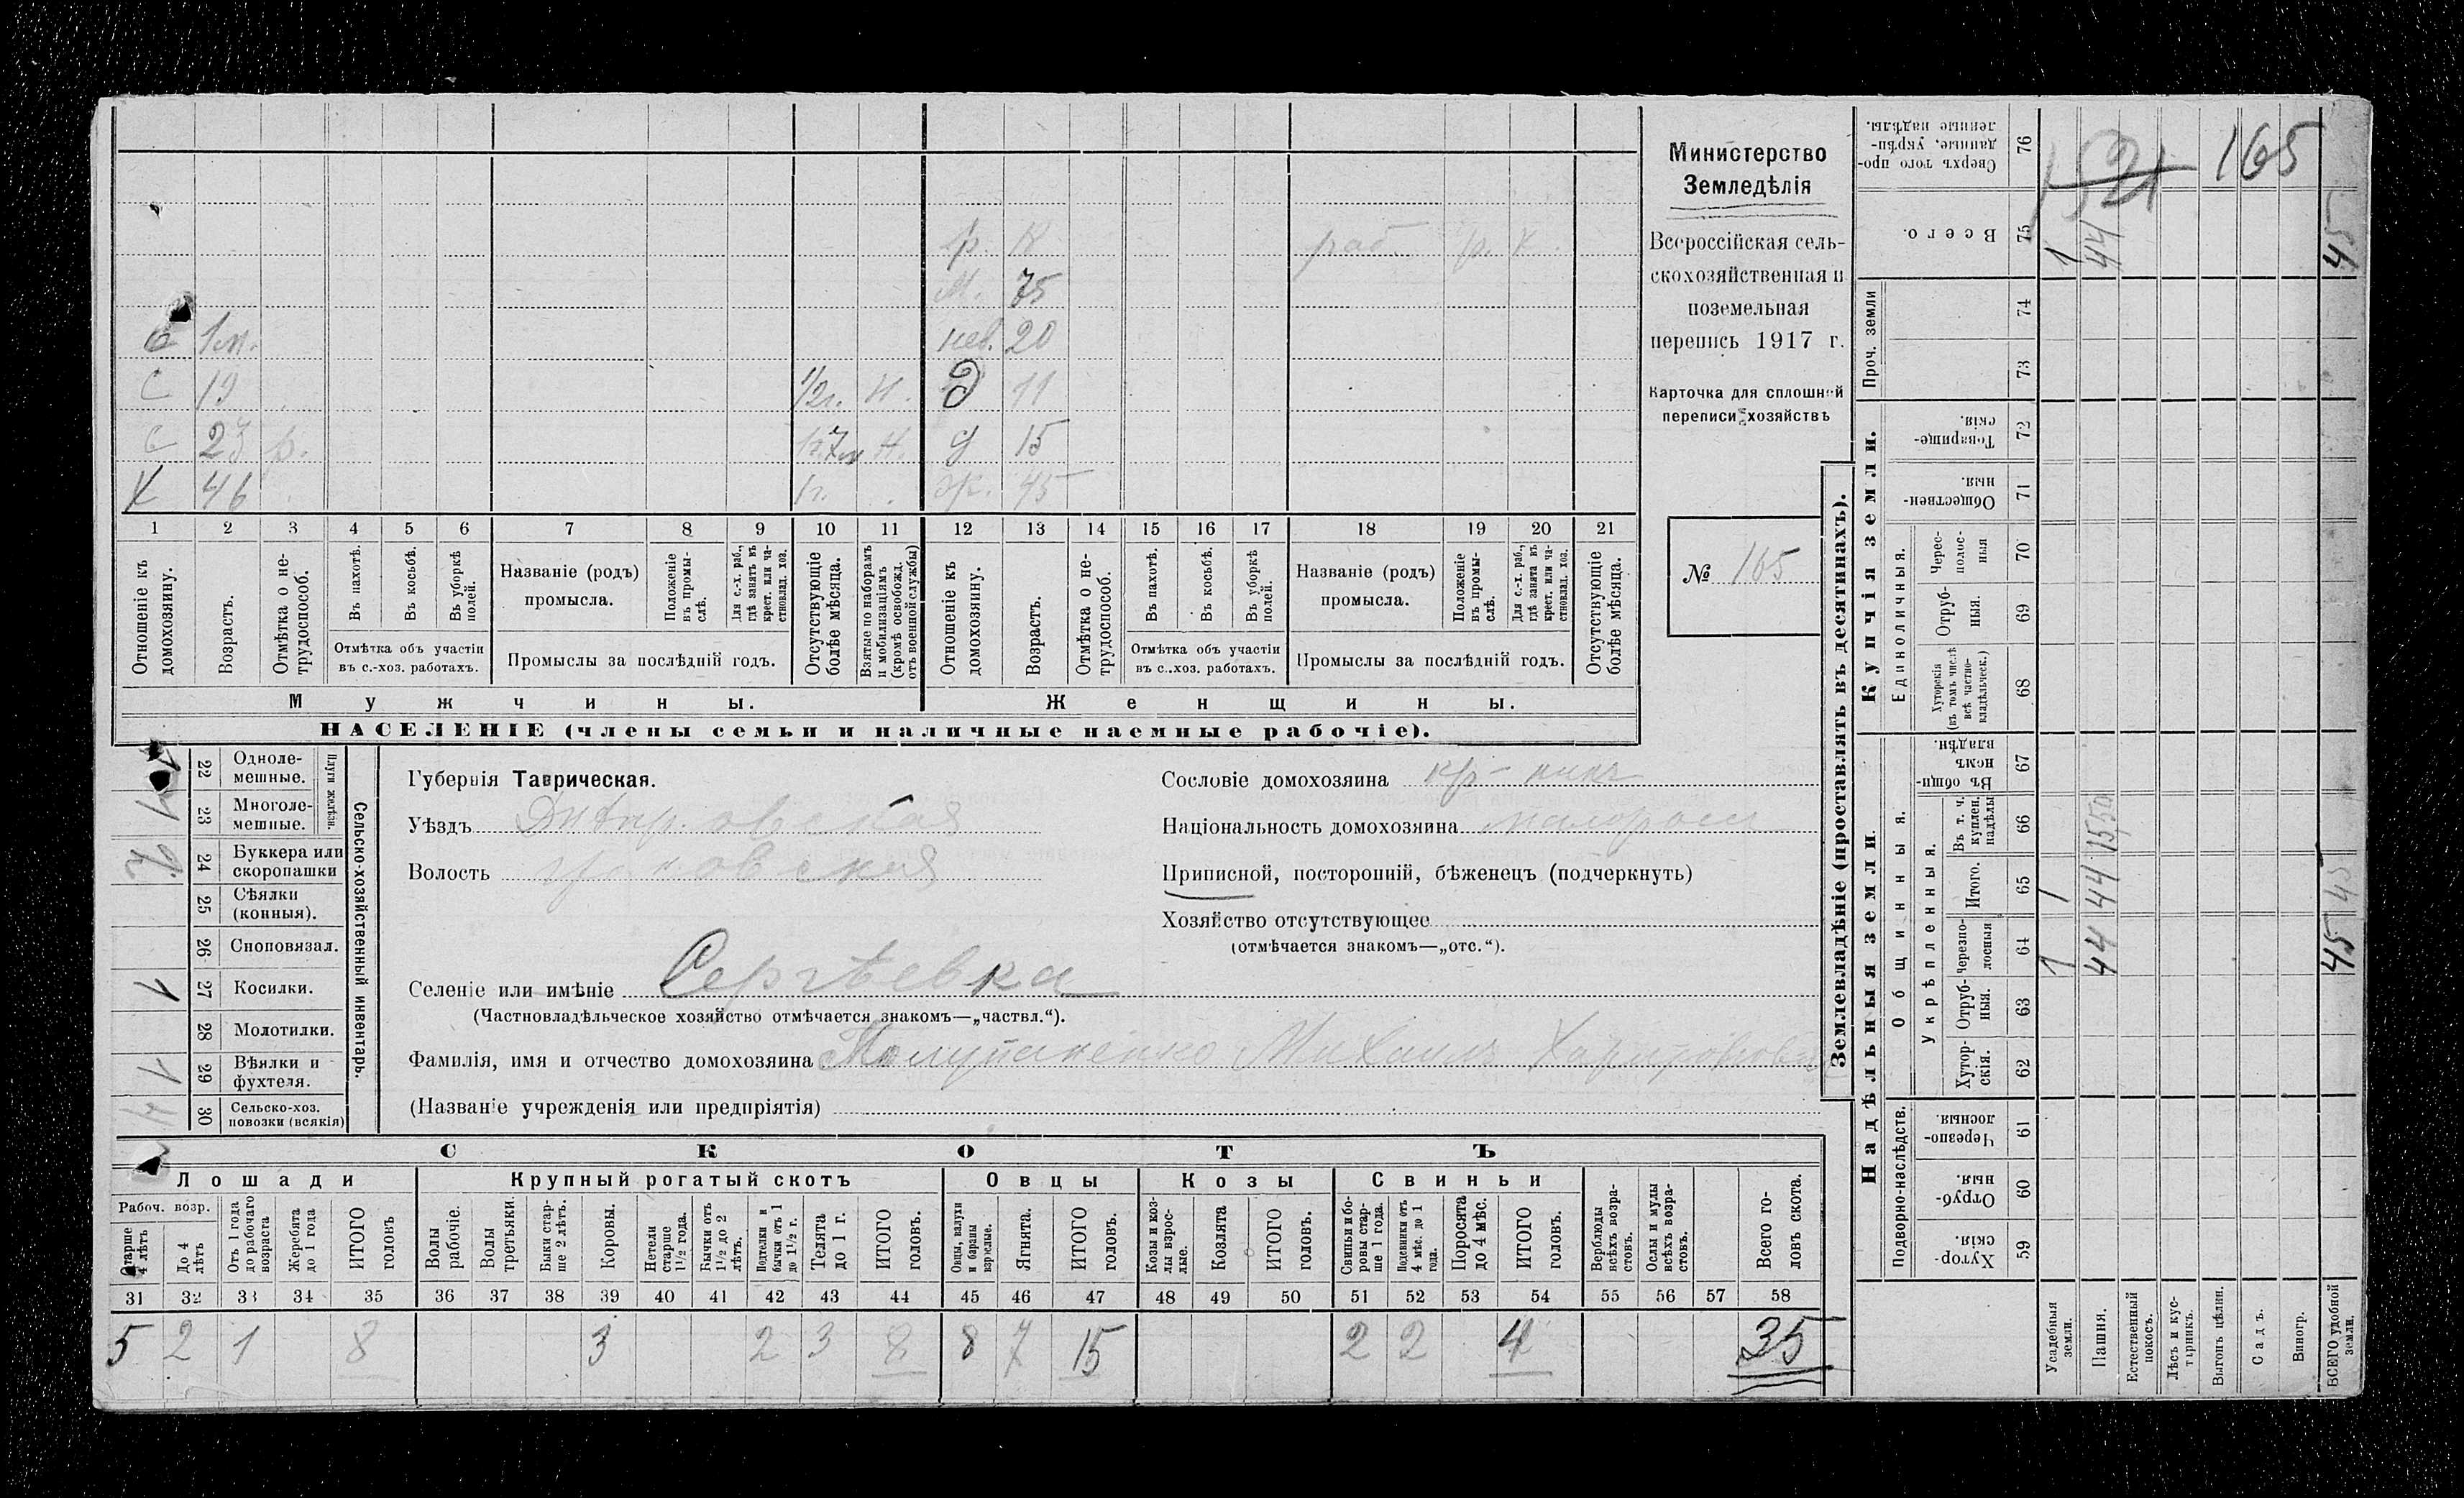 Министерство
Земледѣлія
Всероссійская сель-
скохозяйственная и
поземельная
перепись 1917 г.
Карточка для сплошной
переписи хозяйствъ
№ 165
р. К раб. р. К.
М. 75
С 1м. нев. 20
С 19 1/2г. Н. Д 11
С 23 р. Н. д 15
Х 46 1г. ж. 45
1 2 3 4 5 6 7 8 9 10 11 12 13 14 15 16 17 18 19 20 21
Отношеніе къ домохозяину.
Возрастъ.
Отмѣтка о не-трудоспособ.
Въ пахотѣ.
Въ косьбѣ.
Въ уборкѣ полей.
Отмѣтка объ участіи
въ с.-хоз. работахъ.
Названіе (родъ)
промысла.
Положеніе въ промы-слѣ.
Для с.-х. раб., гдѣ занятъ въ крест. или ча-стновлад. хоз.
Промыслы за послѣдній годъ.
Отсутствующіе болѣе мѣсяца.
Взятые по наборамъ и мобилизаціямъ (кромѣ освобожд. отъ военной службы)
Отношеніе къ домохозяину.
Возрастъ.
Отмѣтка о не-трудоспособ.
Въ пахотѣ.
Въ косьбѣ.
Въ уборкѣ полей.
Отмѣтка объ участіи
въ с.-хоз. работахъ.
Названіе (родъ)
промысла.
Положеніе въ промы-слѣ.
Для с.-х. раб., гдѣ занята въ крест. или ча-стновлад. хоз.
Промыслы за послѣдній годъ.
Отсутствующіе болѣе мѣсяца.
Мужчины. Женщины.
НАСЕЛЕНІЕ (члены семьи и наличные наемные рабочіе).
Сельско-хозяйственный инвентарь.
Плуги желѣзн.
22 Одноле-мешные.
1 23 Многоле-мешные.
24 Буккера или скоропашки
25 Сѣялки (конныя).
26 Сноповязал.
1 27 Косилки.
28 Молотилки.
1 29 Вѣялки и фухтеля.
30 Сельско-хоз. повозки (всякія)
Губернія Таврическая.
Уѣздъ Днѣпровская
Волость
Селеніе или имѣніе Сергѣевка
(Частновладѣльческое хозяйство отмѣчается знакомъ—„частвл.“).
Фамилія, имя и отчество домохозяина Михаилъ
(Названіе учрежденія или предпріятія)
Сословіе домохозяина кр-нинъ
Національность домохозяина малороссъ
Приписной, посторонній, бѣженецъ (подчеркнуть)
Хозяйство отсутствующее
(отмѣчается знакомъ—„отс.“).
СКОТЪ
Лошади Крупный рогатый скотъ Овцы Козы Свиньи
Рабоч. возр.
Старше 4 лѣтъ
До 4 лѣтъ
Отъ 1 года до рабочаго возраста
Жеребята до 1 года
ИТОГО головъ
Волы рабочіе.
Волы третьяки.
Быки стар-ше 2 лѣтъ.
Коровы.
Нетели старше 1 1/2 года.
Бычки отъ 1 1/2 до 2 лѣтъ.
Подтелки и бычки отъ 1 до 1 1/2 г.
Телята до 1 г.
ИТОГО головъ.
Овцы, валухи и бараны взрослые.
Ягнята.
ИТОГО головъ.
Козы и коз-лы взрос-лые.
Козлята
ИТОГО головъ.
Свиньи и бо-ровы стар-ше 1 года.
Подсвинки отъ 4 мѣс. до 1 года.
Поросята до 4 мѣс.
ИТОГО головъ.
Верблюды всѣхъ возра-стовъ.
Ослы и мулы всѣхъ возра-стовъ.
Всего го-ловъ скота.
31 32 33 34 35 36 37 38 39 40 41 42 43 44 45 46 47 48 49 50 51 52 53 54 55 56 57 58
5 2 1 8 3 2 3 8 8 7 15 2 2 4 35
Землевладѣніе (проставлять въ десятинахъ).
Купчія земли.
Надѣльныя земли.
Сверхъ того про-данные, укрѣп-ленные надѣлы. 76 165
Всего. 75 1 44 45
Проч. земли 74
73
Товарище-скія. 72
Обществен-ныя. 71
Единоличныя.
Черес-полос-ныя 70
Отруб-ныя. 69
Хуторскія (въ томъ числѣ всѣ частно-владѣльческ.) 68
Общинныя.
Въ общи-номъ владѣн. 67
Укрѣпленныя.
Въ т. ч. куплен. надѣлы 66
Итого. 65 1 44 45
Черезпо-лосныя 64 1 44 45
Отруб-ныя. 63
Хутор-скія. 62
Подворно-наслѣдств.
Черезпо-лосныя 61
Отруб-ныя. 60
Хутор-скія. 59
Усадебныя земли.
Пашня.
Естественный покосъ.
Лѣсъ и кус-тарникъ.
Выгонъ цѣлин.
Садъ.
Виногр.
ВСЕГО удобной земли.